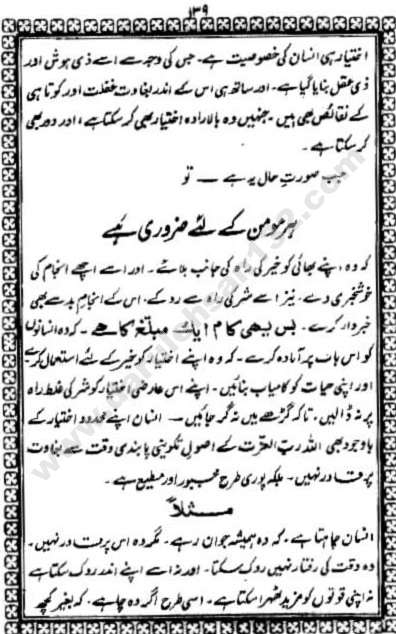 ۱۳۹
اختیار ہی انسان کی خصوصیت ہے۔ جس کی وجہ سے اسے ذی ہوش اور
ذی عقل بنایا گیا ہے۔ اور ساتھ ہی اس کے اندر بغاوت غفلت اور کوتاہی
کے نقائص بھی ہیں۔ جنہیں وہ بالارادہ اختیار بھی کرسکتا ہے، اور دور بھی
کرسکتا ہے۔
جب صورتِ حال یہ ہے — تو
ہر مومن کے لئے ضروری ہے
کہ وہ اپنے بھائی کو خیر کی راہ کی جانب بلائے۔ اور اسے اچھے انجام کی
خوشخبری دے۔ نیز اسے شر کی راہ سے روکے۔ اس کے انجامِ بد سے بھی
خبردار کرے۔ بس یہی کام ایک مبلغ کا ہے۔ کہ وہ انسانوں
کو اس بات پر آمادہ کرے۔ کہ وہ اپنے اختیار کو خیر کے لئے استعمال کرے
اور اپنی حیات کو کامیاب بنائیں۔ اپنے اس عارضی اختیار کو شر کی غلط راہ
پر نہ ڈالیں، تاکہ گڑھے میں نہ گر جائیں — انسان اپنے محدود اختیار کے
باوجود بھی اللہ ربّ العزّت کے اصولِ تکوینی پابندی وقت سے بغاوت
پر قادر نہیں۔ بلکہ پوری طرح مجبور اور مطیع ہے۔
مثلاً
انسان چاہتا ہے۔ کہ وہ ہمیشہ جوان رہے۔ مگر وہ اس پر قادر نہیں۔
وہ وقت کی رفتار نہیں روک سکتا۔ اور نہ اسے اپنے اندر روک سکتا ہے
نہ اپنی قوتوں کو مزید ٹھہرا سکتا ہے۔ اسی طرح اگر وہ چاہے۔ کہ بغیر کچھ